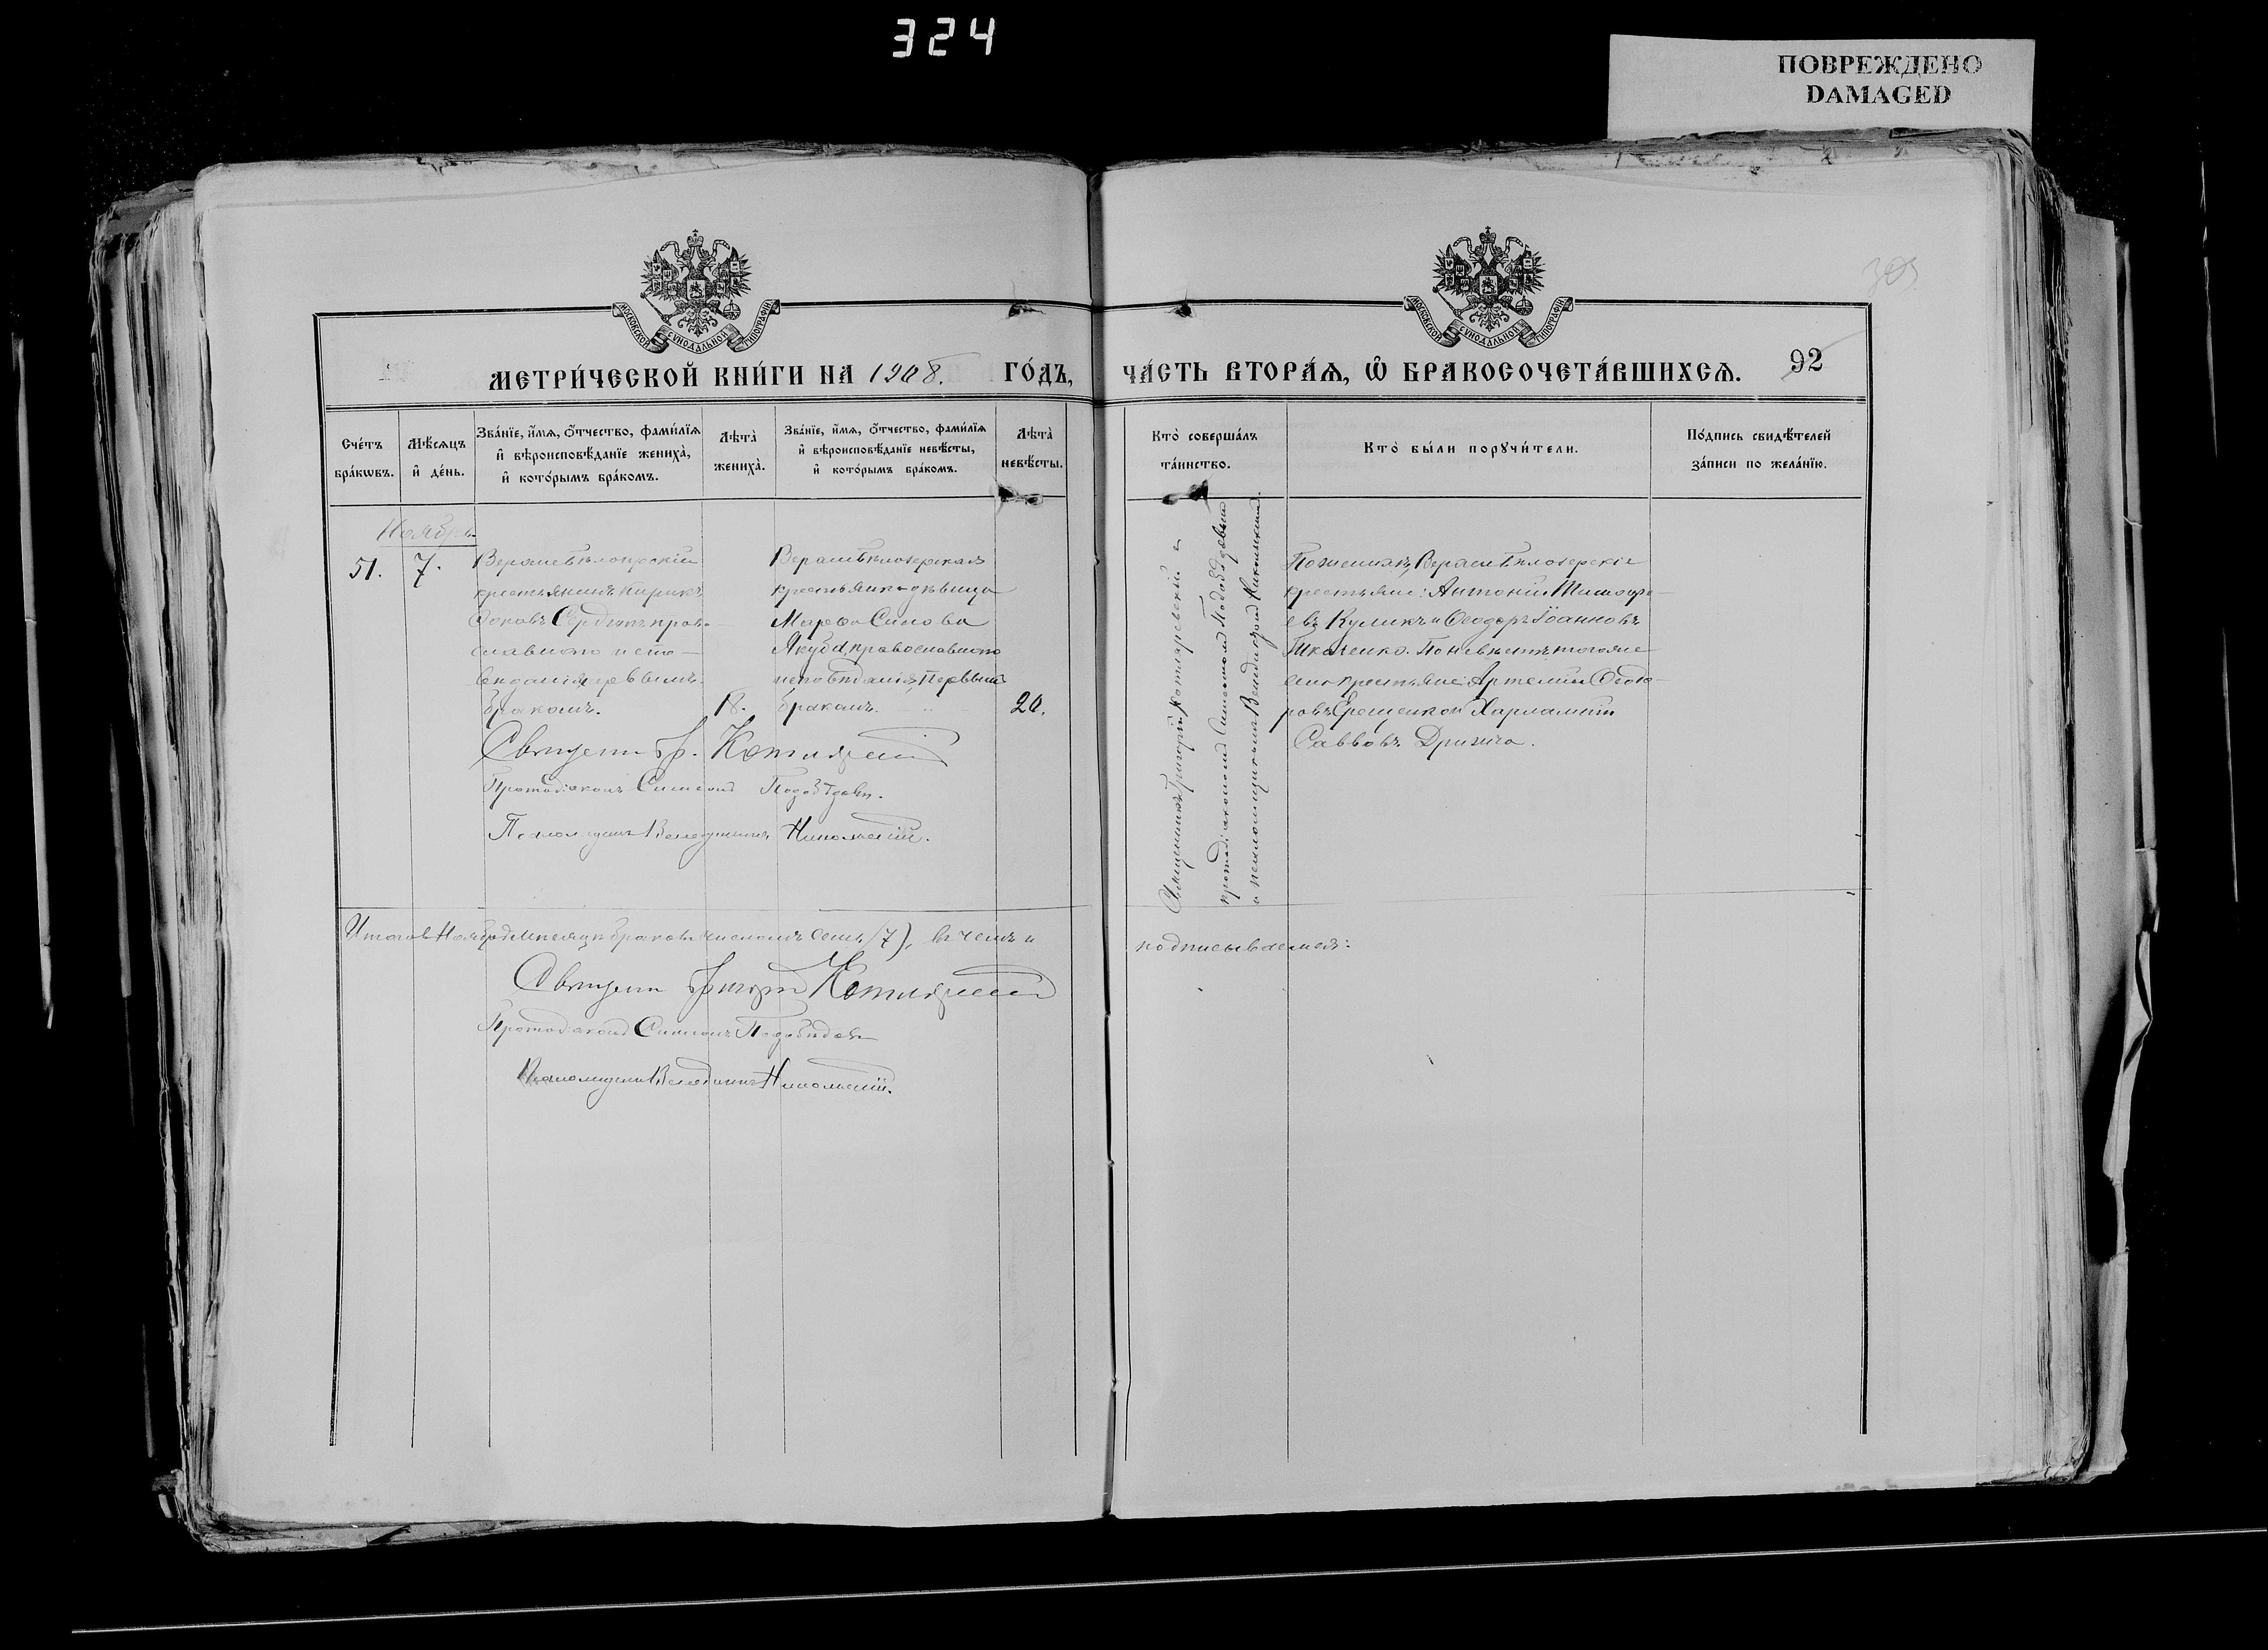 324
ПОВРЕЖДЕНО
DAMAGED
МОСКОВСКОЙ СѴНОДАЛЬНОЙ ТИПОГРАФІИ
МОСКОВСКОЙ СѴНОДАЛЬНОЙ ТИПОГРАФІИ
303
МЕТРИ́ЧЕСКОЙ КНИ́ГИ НА 1908. ГО́ДЪ,
ЧА́СТЬ ВТОРА́Ѧ, Ѡ БРАКОСОЧЕТА́ВШИХСѦ.
92
Сче́тъ бра́кѡвъ.
Мѣ́сѧцъ и де́нь.
Зва́нїе, и́мѧ, о́тчество, фами́лїѧ и вѣроисповѣ́данїе жениха̀, и кото́рымъ бра́комъ.
Лѣта̀ жениха̀.
Зва́нїе, и́мѧ, о́тчество, фами́лїѧ и вѣроисповѣ́данїе невѣ́сты, и кото́рымъ бра́комъ.
Лѣта̀ невѣ́сты.
Кто̀ соверша́лъ та́инство.
Кто̀ бы́ли порꙋчи́тели.
По́дпись свидѣ́телей за́писи по жела́нїю.
Ноябрь
51.
7.
крестьянинъ Кирикъ
Сердюкъ право-
славнаго испо-
веданія первымъ
бракомъ.
18.
крестьянка девица
Марѳа Силова
Якуба, православнаго
исповѣданія, Первымъ
бракомъ.
20.
Священникъ Григорій Котляревскій с
протодіакономъ Симеономъ Подобѣдовымъ
и псаломщикомъ Никольскимъ.
крестьяне: Антоній Тимофе-
евъ Куликъ и Ѳеодоръ Іоанновъ
Ткаченко. По невѣстѣ того же
села крестьяне: Артемій Ѳеодо-
ровъ Ерещенко и Харлампій
Саввовъ Дрыга.
Священн. Гр. Котляревскій
Протодіаконъ Симеонъ Подобѣдовъ.
Псаломщикъ Никольскій.
Итого въ Ноябрѣ мѣсяцѣ браковъ числомъ семь (7), въ чемъ и
подписываемся:
Священн Григорій Котляревскій
Протодіаконъ Симеонъ Подобѣдовъ
Псаломщикъ Никольскій.